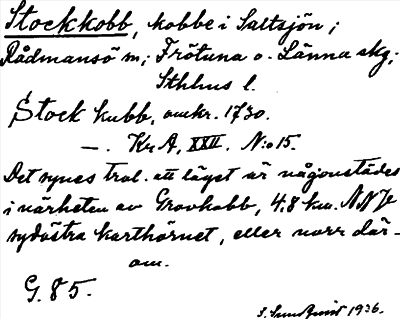 Stockkobb, kobbe i Saltsjön;
Rådmansö sn; Frötuna o. Länna skg;
Sthlms l.
Stock kubb, omkr. 1730.
—. Kr A, XXII. N:o 15.
Det synes trol. att läget är någonstädes
i närheten av Gravkobb, 4,8 km. NNV
sydöstra karthörnet, eller norr där-
om.
G. 85.
1936.